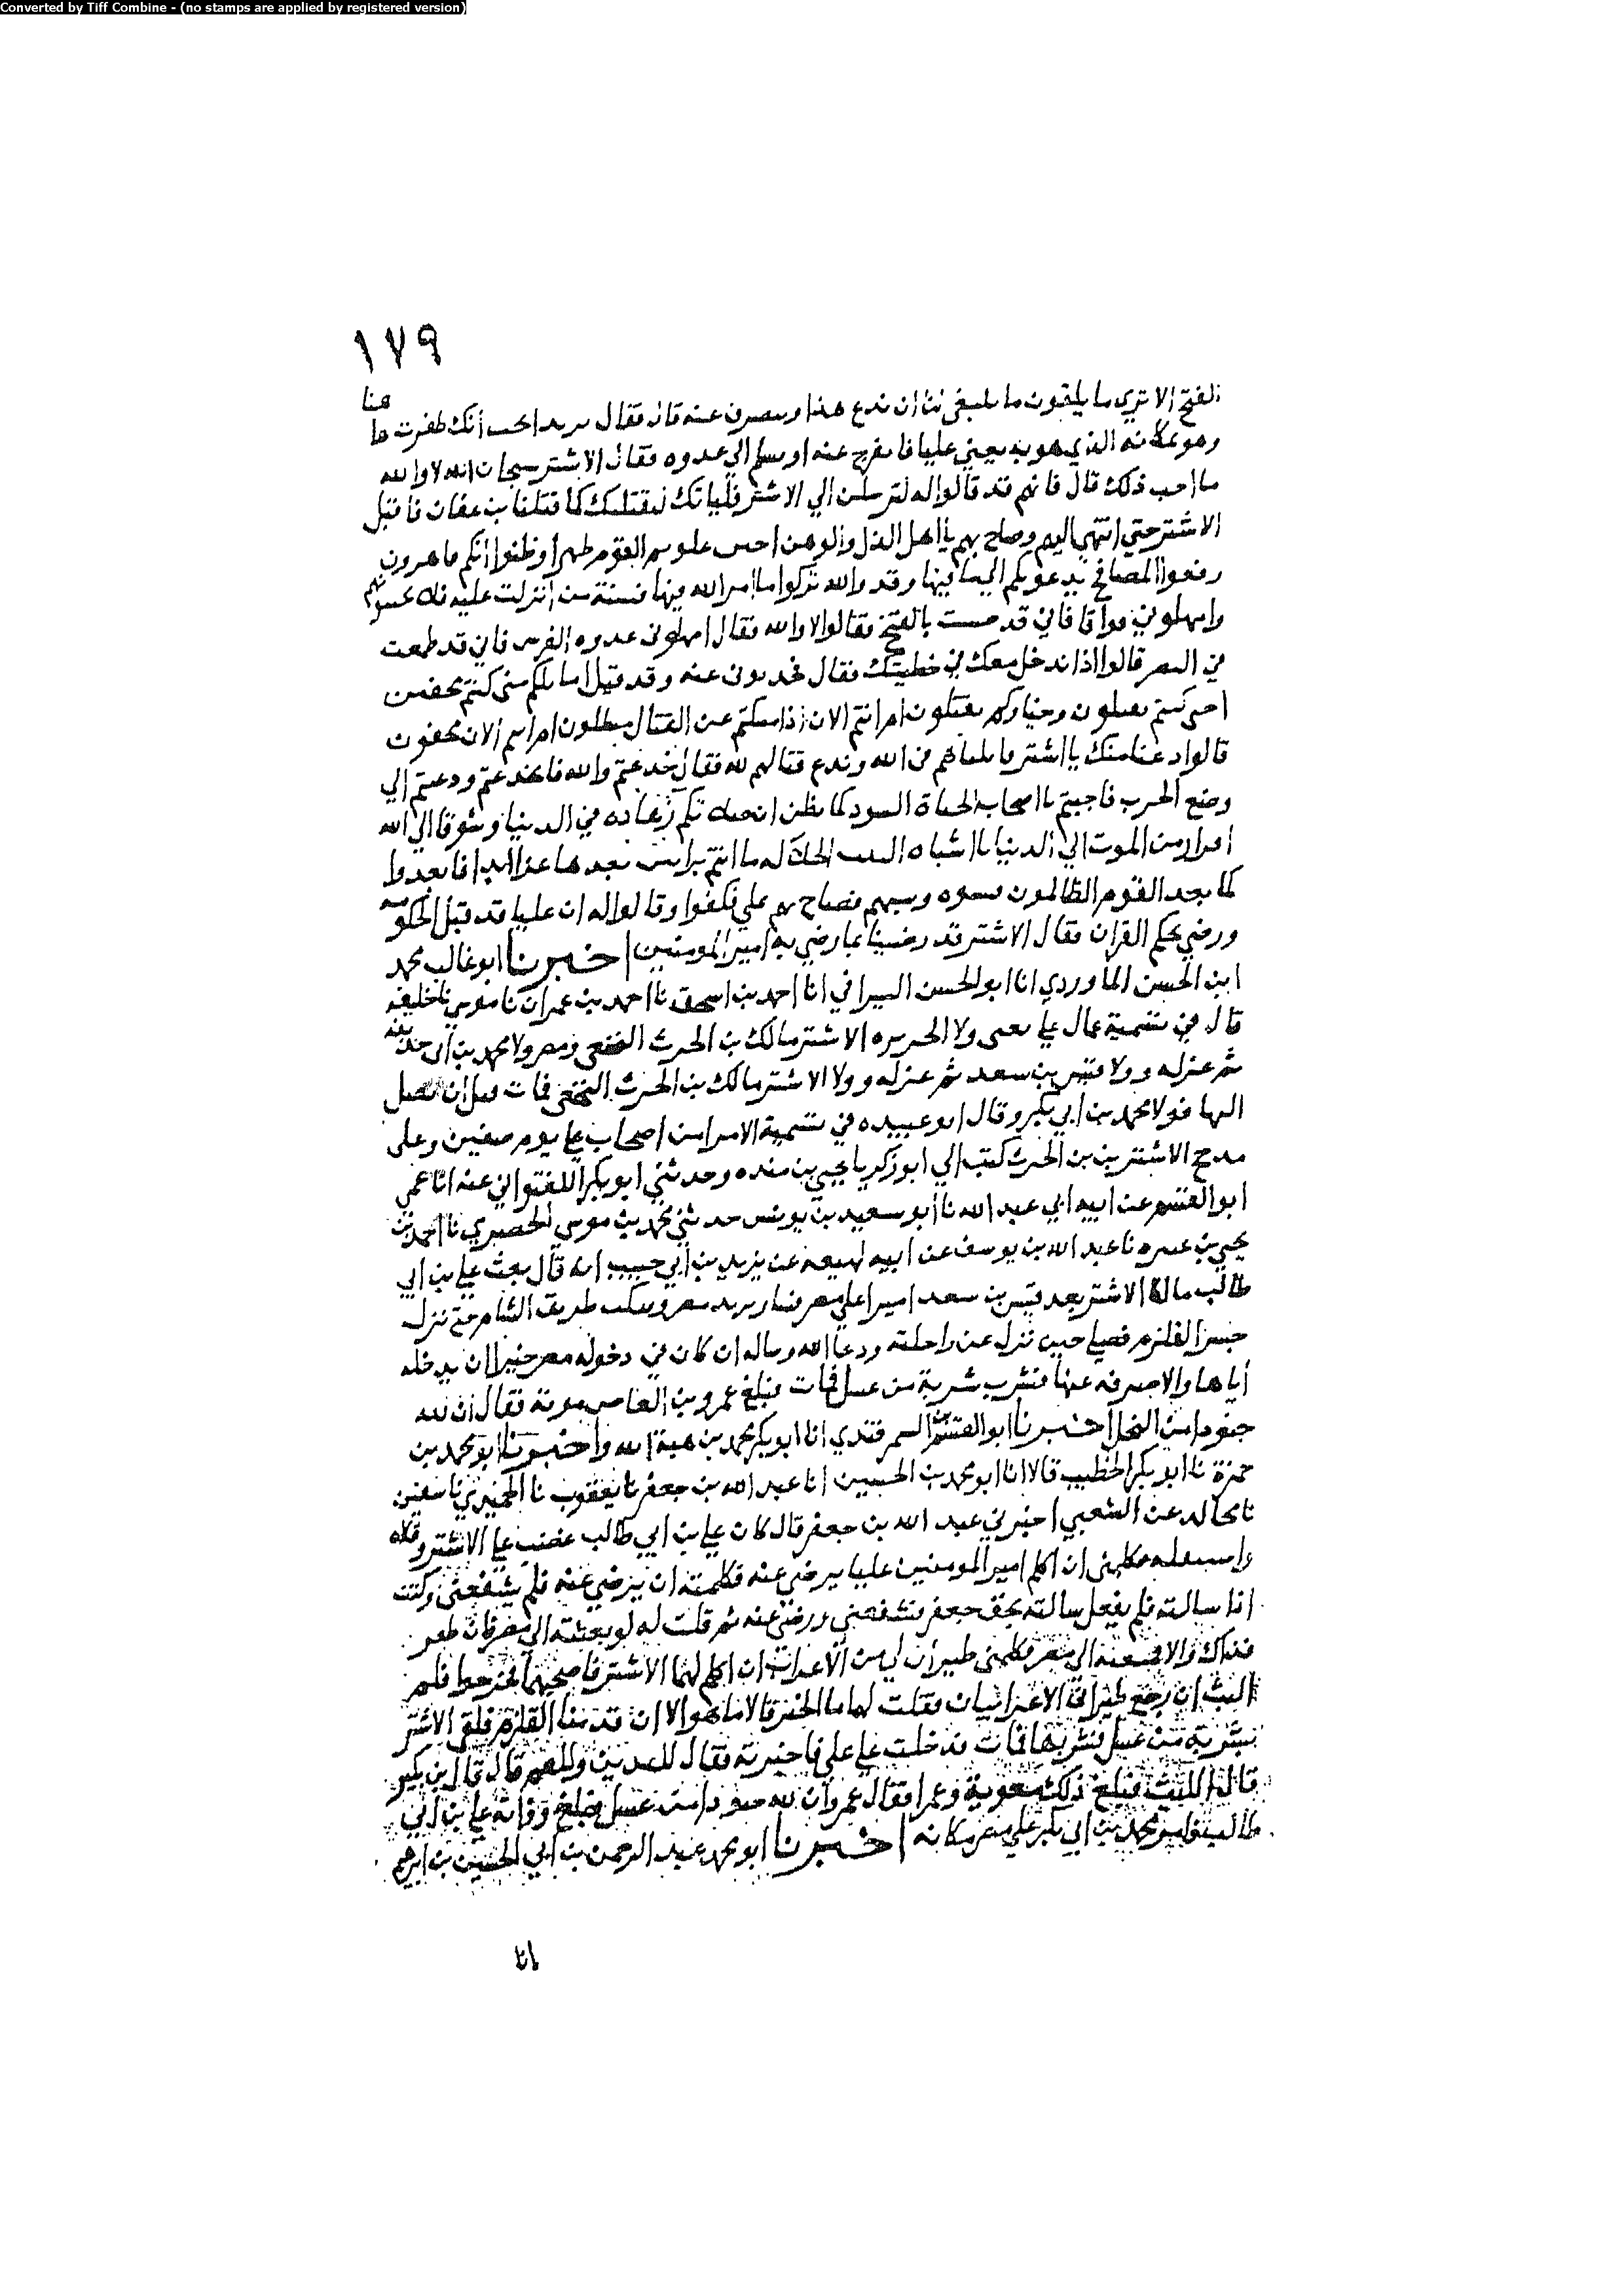 Converted by Tiff Combine - (no stamps are applied by registered version)
١٧٩
الفتح الا تري ما يلقون ما ينبغي لنا ان ندع هذا وينصرف عنه قال فقال يزيد اتحب انك ظفرت ها هنا
وهو بمكانه الذي هو به يعني عليا فانفرج عنه او يسلم الي عدوه فقال الاشتر سبحان الله لا والله
ما احب ذلك قال فانهم قد قالوا له لترسلن الي الاشتر فلياتك او لنقتلنك كما قتلنا بن عفان فاقبل
الاشتر حتي انتهي اليهم وصاح بهم يا اهل الذل والوهن احين علوتم القوم ظهرا وظنوا انكم قاهرون
رفعوا المصاحف يدعونكم الي ما فيها وقد والله تركوا ما امر الله فيها وسنة من انزلت عليه فلا تجيبوهم
وامهلوني فواقا فاني قد حسست بالفتح فقالوا لا والله فقال امهلوني عدوة الفرس فاني قد طمعت
في النصر قالوا اذا ندخل معك في خطيتك فقال فحدثوني عنه وقد قتل اماثلكم متي كنتم محقين
احين كنتم تقتلون وخياركم يقتلون ام انتم الان اذا امسكتم عن القتال مبطلون ام انتم الان محقون
قالوا دعنا منك يا اشتر قاتلناهم في الله وندع قتالهم لله فقال خدعتم والله فانخدعتم ودعيتم الي
وضع الحرب فاجبتم يا اصحاب الجباه السود كنا نظن ان صلاتكم زهادة في الدنيا وشوقا الي الله
افرار من الموت الي الدنيا يا اشباه النيب الجلالة ما انتم برايين بعدها عزا ابدا فابعدوا
كما بعد القوم الظالمون فسبوه وسبهم فصاح بهم علي فكفوا وقالوا له ان عليا قد قبل الحكومة
ورضي بحكم القران فقال الاشتر قد رضينا بما رضي به امير المومنين اخبرنا ابو غالب محمد
ابن الحسن الماوردي انا ابو الحسن السيرافي انا احمد بن اسحق نا احمد بن عمران نا موسي نا خليفة
قال في تسمية عمال علي يعني ولا الجزيرة الاشتر مالك بن الحرث النخعي ومصر ولا محمد بن ابي حذيفة
ثم عزله وولا قيس بن سعد ثم عزله وولا الاشتر مالك بن الحرث النخعي فمات قبل ان يصل
اليها فولا محمد بن ابي بكر وقال ابو عبيده في تسمية الامرا من اصحاب علي يوم صفين وعلي
مذحج الاشتر بن الحرث كتب الي ابو زكريا يحيي بن منده وحدثني ابو بكر اللفتواني عنه انا عمي
ابو القسم عن ابيه ابي عبد الله نا ابو سعيد بن يونس حدثني محمد بن موسي الحضرمي نا احمد بن
يحيي بن عميره نا عبد الله بن يوسف عن ابيه لهيعه عن يزيد بن ابي حبيب انه قال بعث علي بن ابي
طالب مالكا الاشتر بعد قيس بن سعد اميرا علي مصر فسار يريد مصر وتنكب طريق الشام حتي نزل
جسر القلزم فصلي حين نزل عن راحلته ودعا الله وساله ان كان في دخوله مصر خيرا ان يدخله
اياها والا صرفه عنها فشرب شربة من عسل فمات فبلغ عمرو بن العاص موته فقال ان لله
جنودا من العسل اخبرنا ابو القسم بن السمرقندي انا ابو بكر محمد بن هبة الله واخبرنا ابو محمد بن
حمزة نا ابو بكر الخطيب قالا انا ابو محمد بن الحسين انا عبد الله بن جعفر نا يعقوب نا الحميدي نا سفين
نا مجالد عن الشعبي اخبرني عبد الله بن جعفر قال كان علي بن ابي طالب غضب علي الاشتر وقلاه
واستثقله فكلمني ان اكلم امير المومنين عليا يرضي عنه فكلمته ان يرضي عنه فلم يشفعني وكنت
اذا سالته فلم يفعل سالته بحق جعفر فشفعني ورضي عنه ثم قلت له لو بعثته الي مصر فان ظفر
فذاك والا فبعثه الي مصر فكلمني ظيران لي من الاعراب ان اكلم لهما الاشتر فاصحبهما فخرجوا فلم
البث ان رجع ظيراي الاعرابيان فقلت لهما ما الخبر قالا ما هو الا ان قدمنا القلزم فلقي الاشتر
بشربة من عسل فشربها فمات فدخلت علي علي فاخبرته فقال لليدين وللفم قال قال بن بكير
قال الليث فبلغ ذلك معوية وعمرا فقال عمرو ان لله جنودا من عسل فبلغ وفاته علي بن ابي
طالب محمد بن ابي بكر علي مصر مكانه اخبرنا ابو محمد عبد الرحمن بن ابي الحسين بن ابرهيم
انا